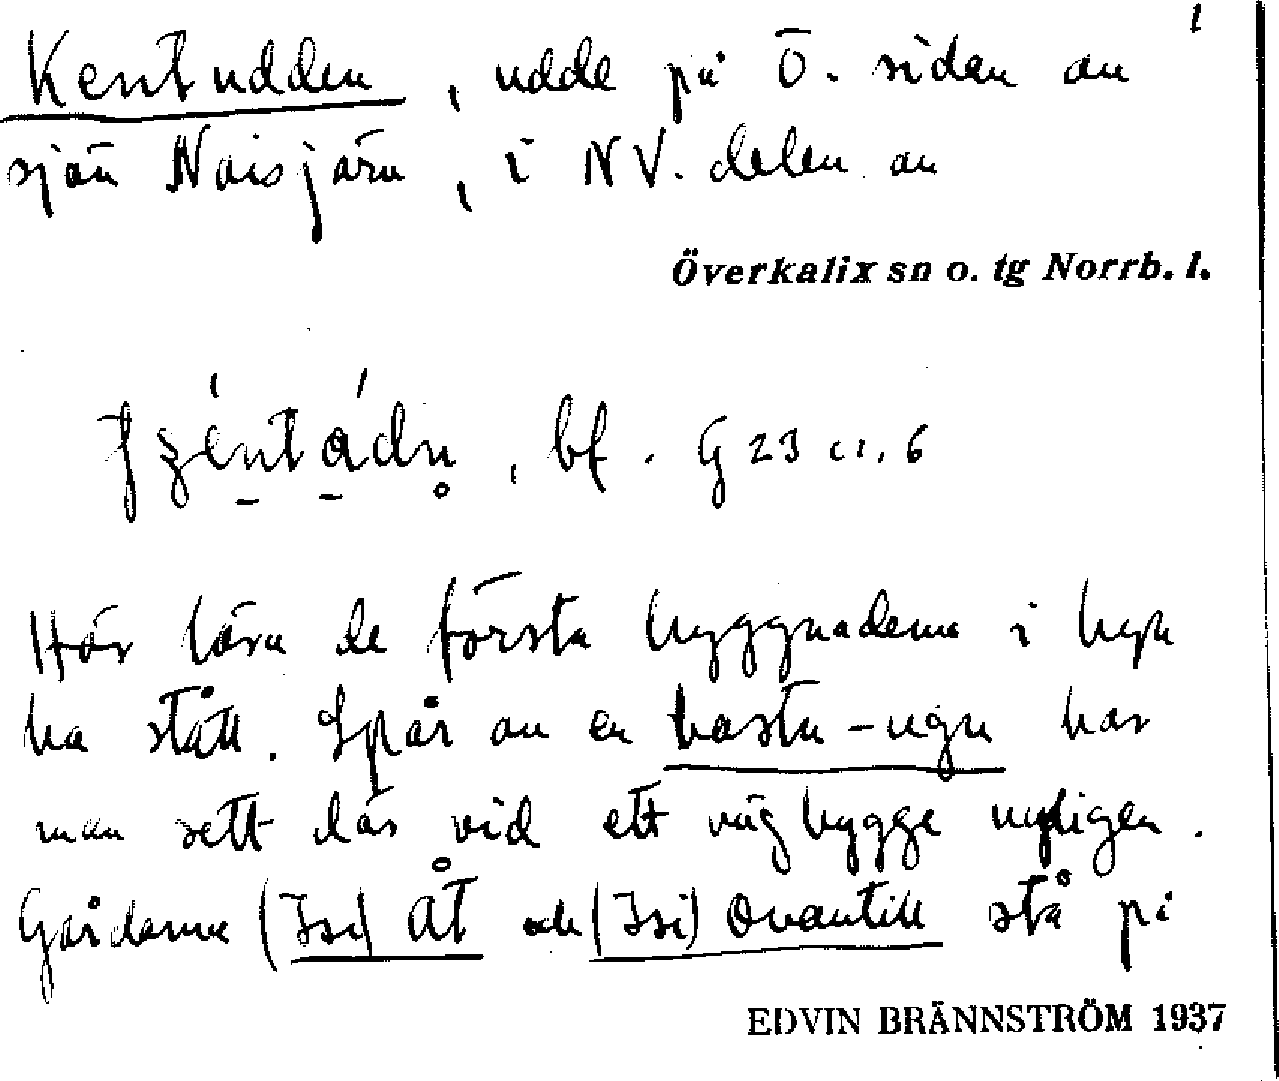 1
Kentudden, udde på Ö. sidan av
sjön Naisjärv, i NV. delen av
Överkalix sn o. tg Norrb. l.
bf. G 23 c1, 6
Här lära de första byggnaderna i byn
ha stått. Spår av en bastu-ugn har
man sett där vid ett vägbygge nyligen.
Gårdarna (Isi) åt och (Isi) Ovantill stå på
EDVIN BRÄNNSTRÖM 1937